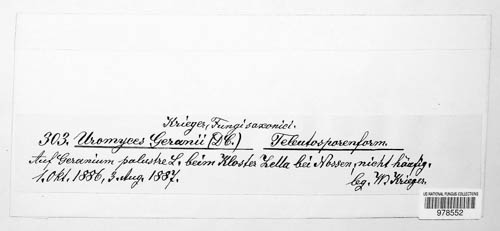 Krieger, Fungi saxonici.
303. Uromyces Geranii (DC.) Teleutosporenform.
Auf Geranium palustre L. beim Kloster Zella bei Nossen, nicht häufig.
1. Okt. 1886, 3. Aug. 1887. leg. W. Krieger.
US NATIONAL FUNGUS COLLECTIONS
978552